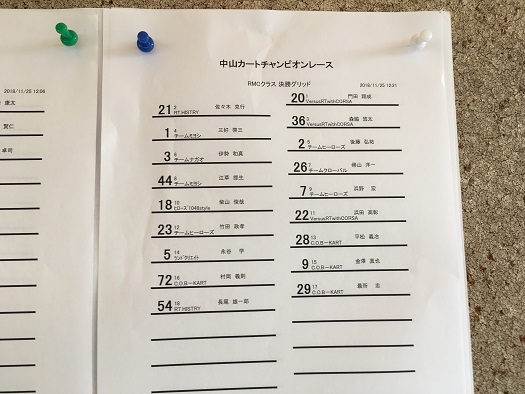 2018/11/25 12:06
康太
賢仁
卓司
中山カートチャンピオンレース
RMCクラス 決勝グリッド
2018/11/25 12:31
21 2 佐々木 克行
RT.HISTRY
20 1 門田 翔成
VersusRTwithCORSA
1 4 三好 啓三
チームミヤシ
36 3 森脇 悠太
VersusRTwithCORSA
3 6 伊勢 和真
チームナガオ
2 5 後藤 弘祐
チームヒーローズ
44 8 江草 慧生
チームミヤシ
26 7 勝山 洋一
チームクローバル
18 10 柴山 俊哉
ヒローズ'1048style
7 9 浜野 宏
チームヒーローズ
23 12 竹田 政孝
チームヒーローズ
22 11 浜田 英彰
VersusRTwithCORSA
5 14 永谷 学
ランドクリエイト
28 13 平松 義治
C.O.B-KART
72 16 村岡 義則
C.O.B-KART
9 15 金澤 直也
C.O.B-KART
54 18 長尾 雄一郎
RT.HISTRY
29 17
C.O.B-KART